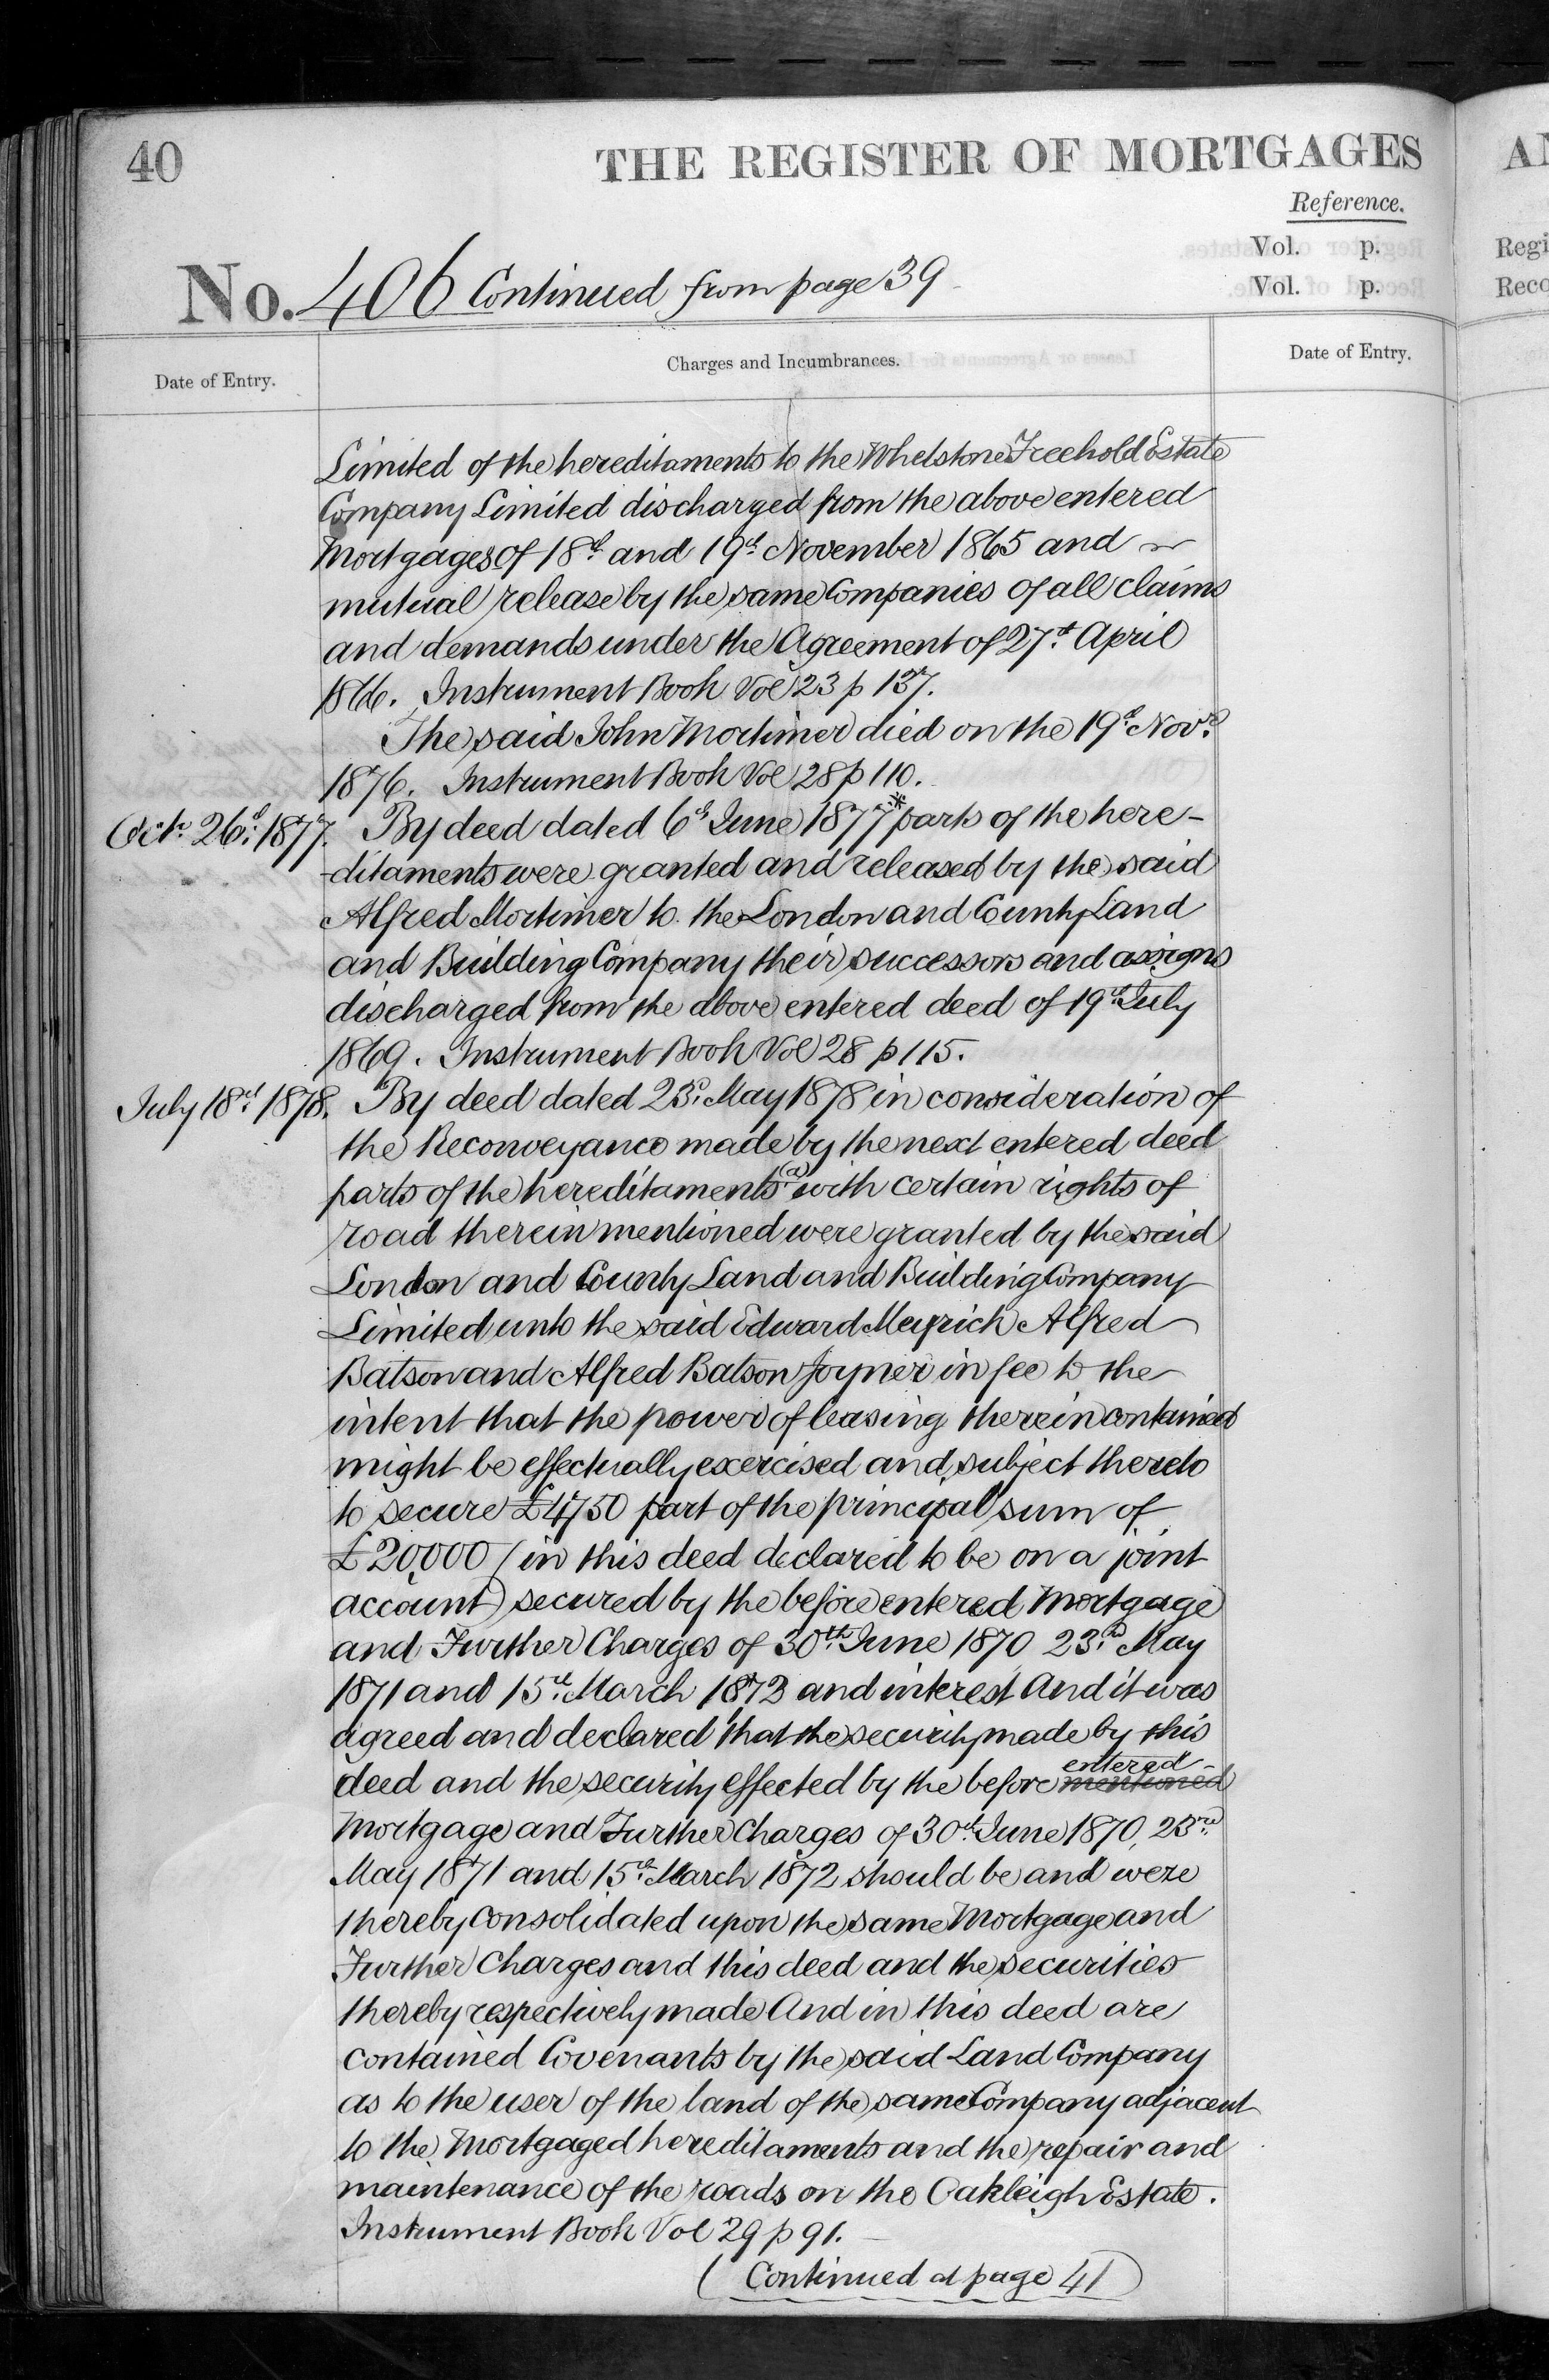 40
THE REGISTER OF MORTGAGES
Reference.
Vol. p.
Vol. p.
No. 406 Continued from page 39
Date of Entry.
Charges and Incumbrances.
Date of Entry.
Limited of the hereditaments to the Whetstone Freehold Estate
Company Limited discharged from the above entered
Mortgages of 18th and 19th November 1865 and
mutual release by the same Companies of all claims
and demands under the Agreement of 27th April
1866. Instrument Book Vol 23 p 137.
The said John Mortimer died on the 19th Novr.
1876. Instrument Book Vol 28 p 110.
Octr. 26th 1877. By deed dated 6th June 1877 * parts of the here-
-ditaments were granted and released by the said
Alfred Mortimer to the London and County Land
and Building Company their successors and assigns
discharged from the above entered deed of 19th July
1869. Instrument Book Vol 28 p 115.
July 18th 1878. By deed dated 23d. May 1878 in consideration of
the Reconveyance made by the next entered deed
parts of the hereditaments (a) with certain rights of
road therein mentioned were granted by the said
London and County Land and Building Company
Limited unto the said Edward Meyrick Alfred
Batson and Alfred Batson Joyner in fee to the
intent that the power of leasing therein contained
might be effectually exercised and subject thereto
to secure £4750 part of the principal sum of
£20,000 (in this deed declared to be on a joint
account) secured by the before entered Mortgage
and Further Charges of 30th June 1870 23rd May
1871 and 15th March 1873 and interest And it was
agreed and declared that the security made by this
deed and the security effected by the before mentioned entered
Mortgage and Further Charges of 30th June 1870, 23rd
May 1871 and 15th March 1872 should be and were
thereby consolidated upon the same Mortgage and
Further Charges and this deed and the securities
thereby respectively made And in this deed are
contained Covenants by the said Land Company
as to the user of the land of the same Company adjacent
to the Mortgaged hereditaments and the repair and
maintenance of the roads on the Oakleigh Estate.
Instrument Book Vol 29 p 91.
(Continued at page 41)
AN
Regi
Reco